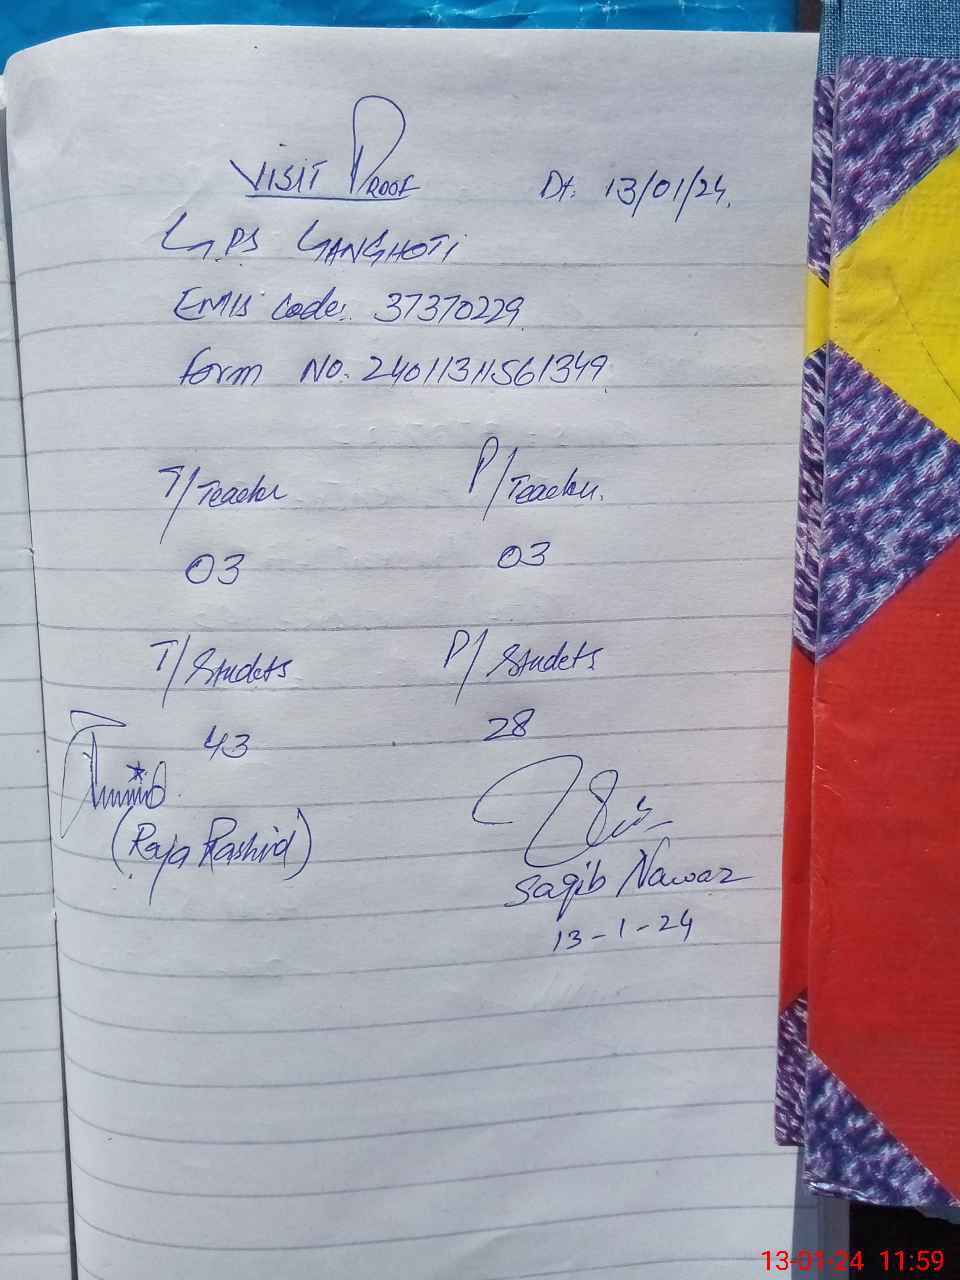 VISIT PROOF Dt. 13/01/24.
G.PS GANGHOTI
EMIS Code: 37370229
form No. 24011311561349
T/Teacher P/Teacher.
03 03
T/Studets P/Studets
43 28
(Raja Rashid)
Saqib Nawaz
13-1-24
13-01-24 11:59